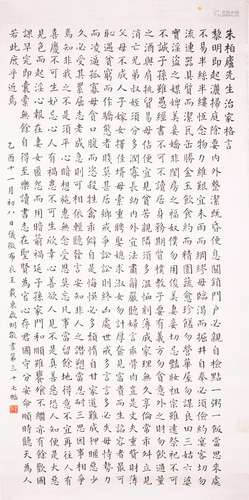 朱柏廬先生治家格言
黎明即起灑掃庭除要內外整潔既昏便息關鎖門戶必親自檢點一粥一飯當思來處
不易半絲半縷恆念物力維艱宜未雨而綢繆毋臨渴而掘井自奉必須儉約宴客切勿
流連器具質而潔瓦缶勝金玉飲食約而精園蔬愈珍饈勿營華屋勿謀良田三姑六婆
實淫盜之媒婢美妾嬌非閨房之福奴僕勿用俊美妻妾切忌豔妝祖宗雖遠祭祀不可
不誠子孫雖愚經書不可不讀居身務期質樸教子要有義方勿貪意外之財勿飲過量
之酒與肩挑貿易毋佔便宜見貧苦親鄰須多溫恤刻薄成家理無久享倫常乖舛立見
消亡兄弟叔姪須分多潤寡長幼內外宜法肅辭嚴聽婦言乖骨肉豈是丈夫重資財薄
父母不成人子嫁女擇佳婿毋索重聘娶媳求淑女勿計厚奩見富貴而生諂容者最可
恥遇貧窮而作驕態者賤莫甚居家戒爭訟訟則終凶處世戒多言言多必失毋恃勢力
而凌逼孤寡毋貪口腹而恣殺牲禽乖僻自是悔誤必多頹惰自甘家道難成狎暱惡少
久必受其累屈志老成急則可相依輕聽發言安知非人之譖訴當忍耐三思因事相爭
焉知非我之不是須平心暗想施惠勿念受恩莫忘凡事當留餘地得意不宜再往人有
喜慶不可生妒忌心人有禍患不可生喜幸心善欲人見不是真善惡恐人知便是大惡
見色而起淫心報在妻女匿怨而用暗箭禍延子孫家門和順雖饔飧不繼亦有餘歡國
課早完即囊橐無餘自得至樂讀書志在聖賢為官心存君國守分安命順時聽天為人
若此庶乎近焉
乙酉十一月初八日儀徵布衣王 敬書第三十七福